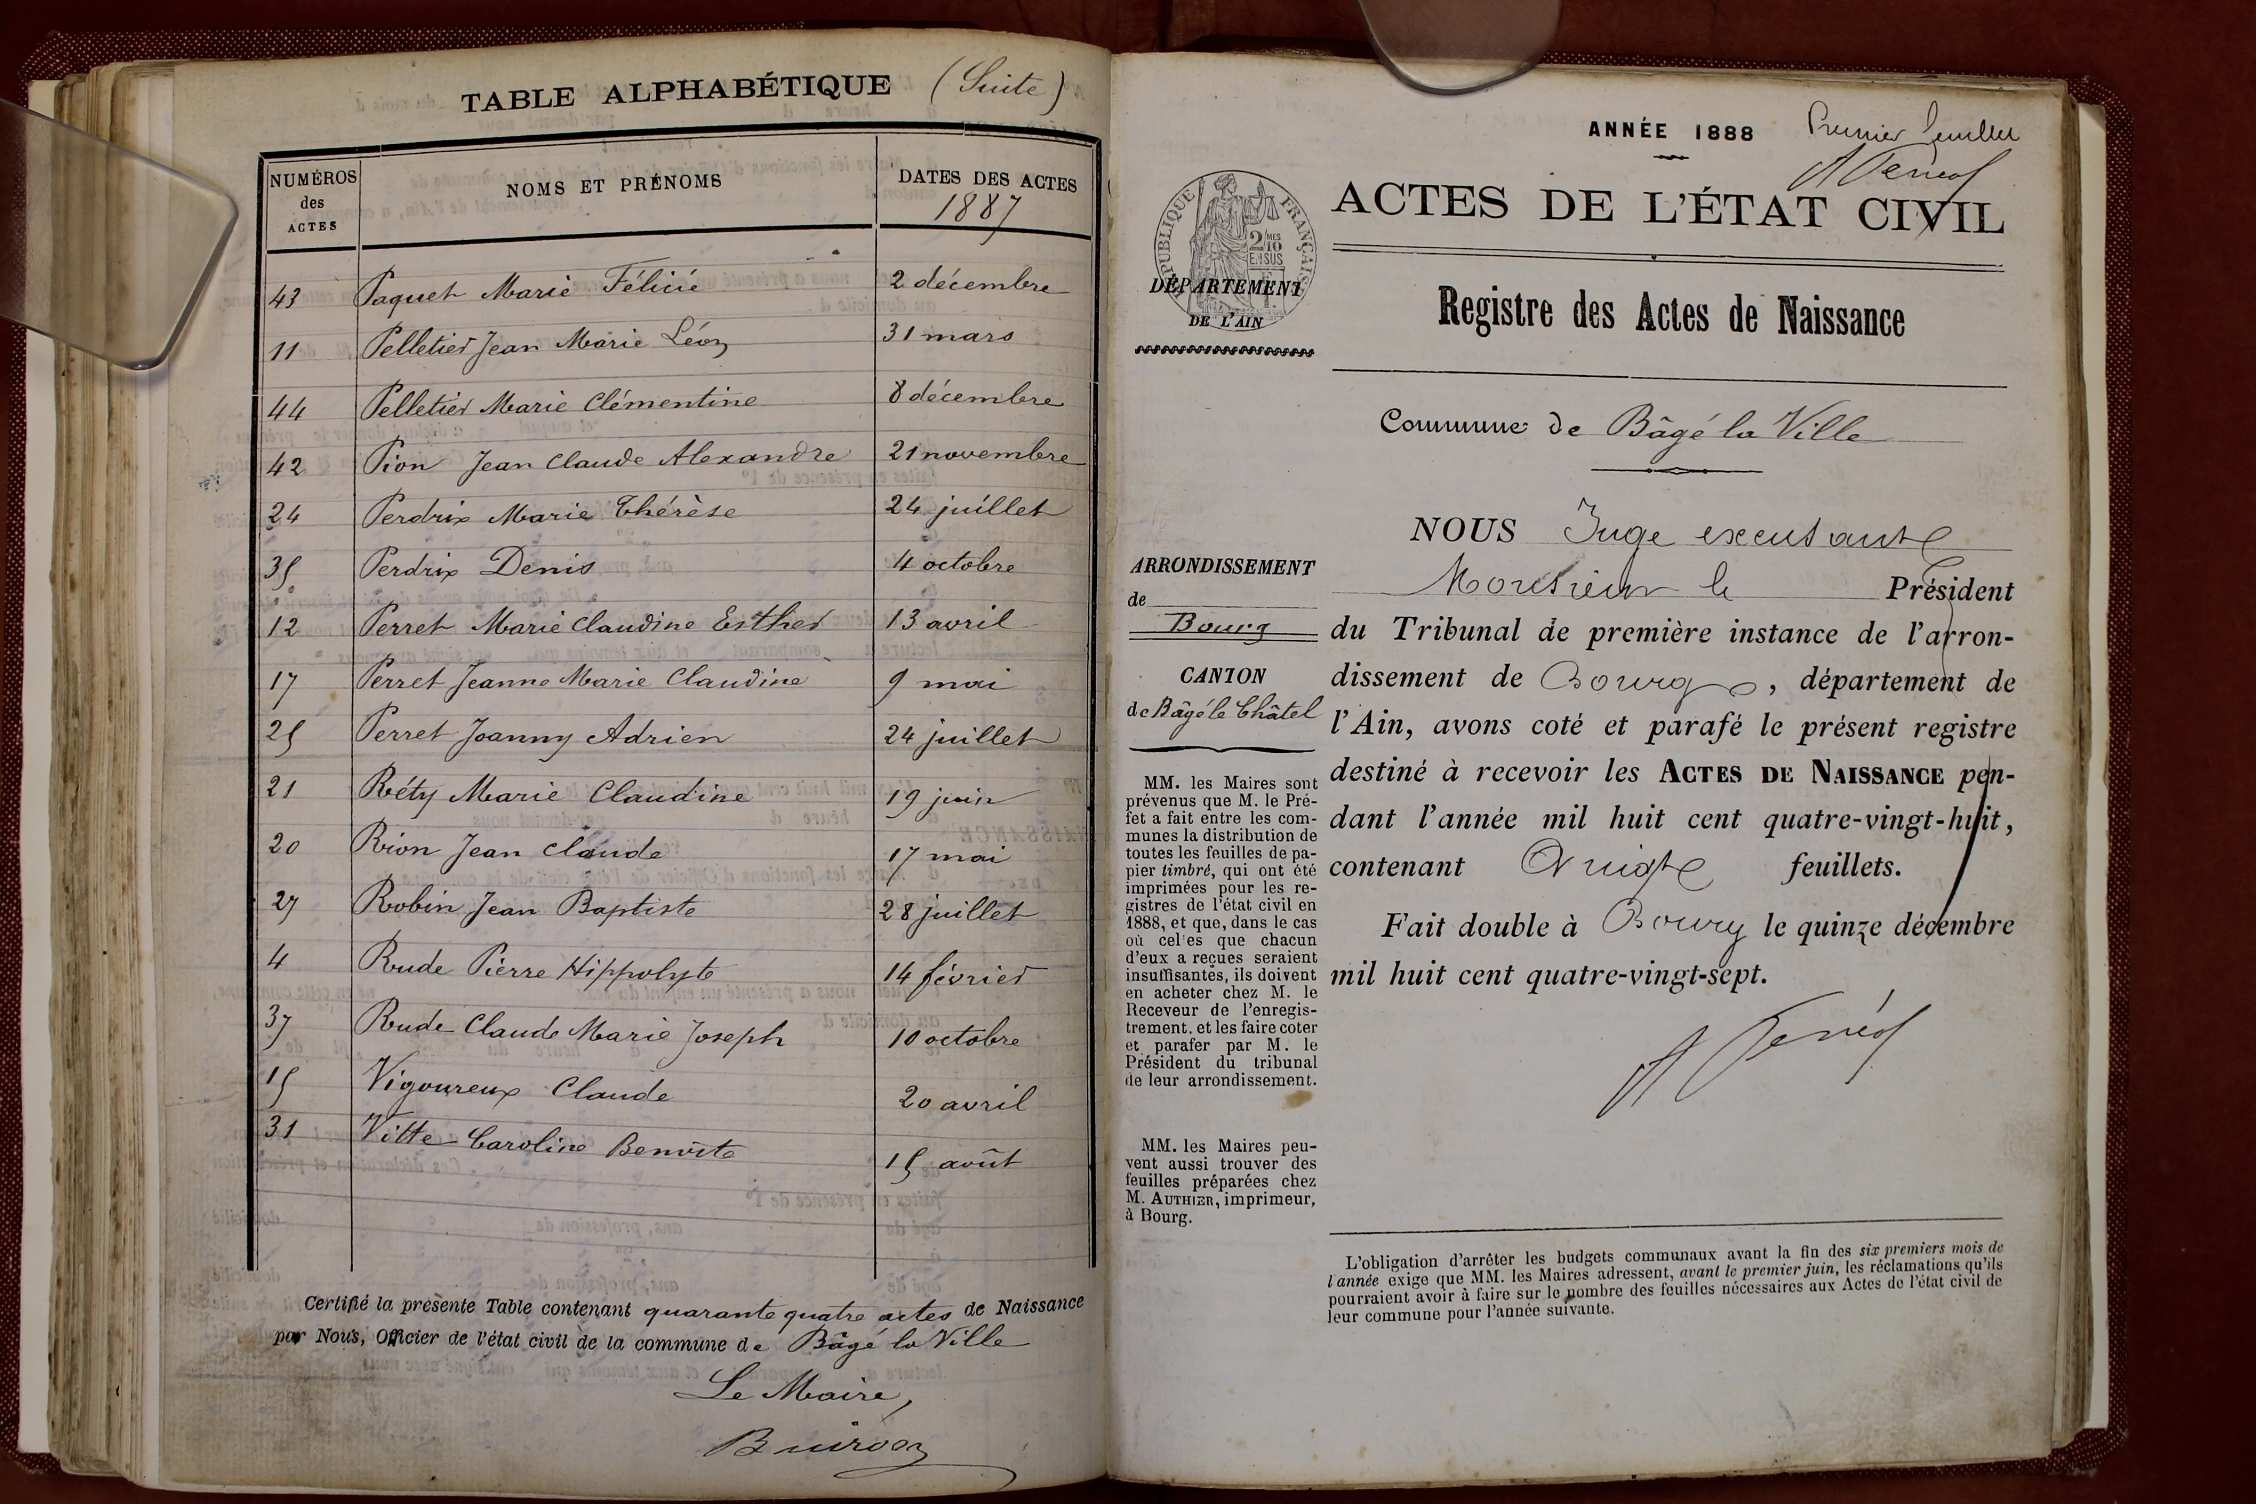 TABLE ALPHABÉTIQUE (Suite)
NUMÉROS des ACTES NOMS ET PRÉNOMS DATES DES ACTES 1887
43 Paquet Marie Félicie 2 décembre
11 Pelletier Jean Marie Léon 31 mars
44 Pelletier Marie Clémentine 8 décembre
42 Pion Jean Claude Alexandre 21 novembre
24 Perdrix Marie Thérèse 24 juillet
35 Perdrix Denis 4 octobre
12 Perret Marie Claudine Esther 13 avril
17 Perret Jeanne Marie Claudine 9 mai
25 Perret Joanny Adrien 24 juillet
21 Réty Marie Claudine 19 juin
20 Rion Jean Claude 17 mai
27 Robin Jean Baptiste 28 juillet
4 Rude Pierre Hippolyte 14 février
37 Rude Claude Marie Joseph 10 octobre
15 Vigoureux Claude 20 avril
31 Vitte Caroline Benoite 15 août
Certifié la présente Table contenant quarante quatre actes de Naissance
par Nous, Officier de l'état civil de la commune de Bâgé la Ville
Le Maire,
ANNÉE 1888
Premier feuillet
ACTES DE L'ÉTAT CIVIL
RÉPUBLIQUE FRANÇAISE
2 MES 10 EN SUS
DÉPARTEMENT
DE L'AIN
Registre des Actes de Naissance
Commune de Bâgé la Ville
ARRONDISSEMENT
de
Bourg
CANTON
de Bâgé le Châtel
MM. les Maires sont
prévenus que M. le Pré-
fet a fait entre les com-
munes la distribution de
toutes les feuilles de pa-
pier timbré, qui ont été
imprimées pour les re-
gistres de l'état civil en
1888, et que, dans le cas
où celles que chacun
d'eux a reçues seraient
insuffisantes, ils doivent
en acheter chez M. le
Receveur de l'enregis-
trement, et les faire coter
et parafer par M. le
Président du tribunal
de leur arrondissement.
MM. les Maires peu-
vent aussi trouver des
feuilles préparées chez
M. AUTHIER, imprimeur,
à Bourg.
NOUS Juge
Monsieur le Président
du Tribunal de première instance de l'arron-
dissement de Bourg, département de
l'Ain, avons coté et parafé le présent registre
destiné à recevoir les ACTES DE NAISSANCE pen-
dant l'année mil huit cent quatre-vingt-huit,
contenant feuillets.
Fait double à Bourg le quinze décembre
mil huit cent quatre-vingt-sept.
L'obligation d'arrêter les budgets communaux avant la fin des six premiers mois de
l'année exige que MM. les Maires adressent, avant le premier juin, les réclamations qu'ils
pourraient avoir à faire sur le nombre des feuilles nécessaires aux Actes de l'état civil de
leur commune pour l'année suivante.